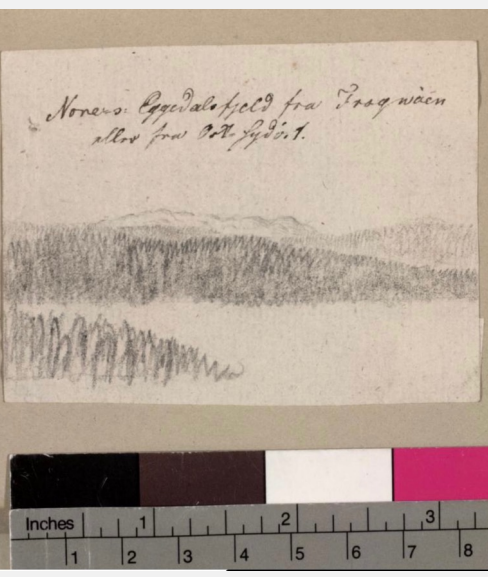 Norefs: Eggedalsfjeld fra Frogwåen
eller fra Ost-Sydost.
Inches 1 2 3
1 2 3 4 5 6 7 8